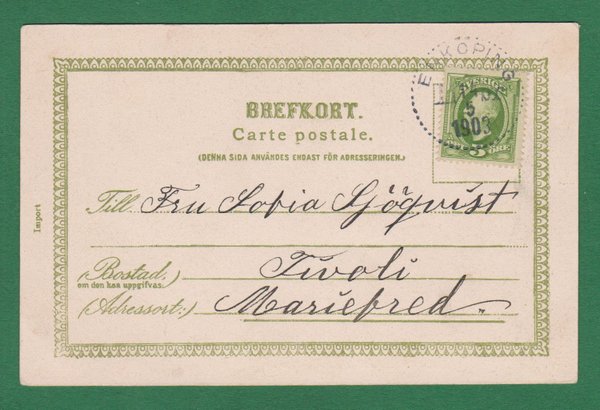 BREFKORT.
Carte postale.
(DENNA SIDA ANVÄNDES ENDAST FÖR ADRESSERINGEN.)
ENKÖPING
SVERIGE
5
1903
5 ÖRE
Till Fru Sofia Sjöqvist
(Bostad.) Tivoli
om den kan uppgifvas.
(Adressort:) Mariefred.
Import